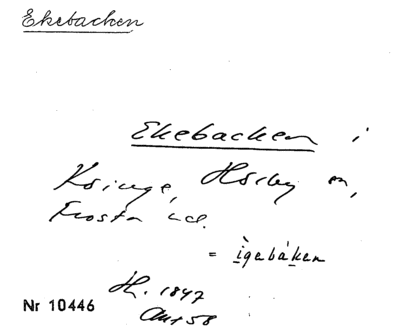 Ekebacken
Ekebacken i
Ksinge, Hörby sn,
Frosta hd.
= ìgebáken
H. 1847
Nr 10446